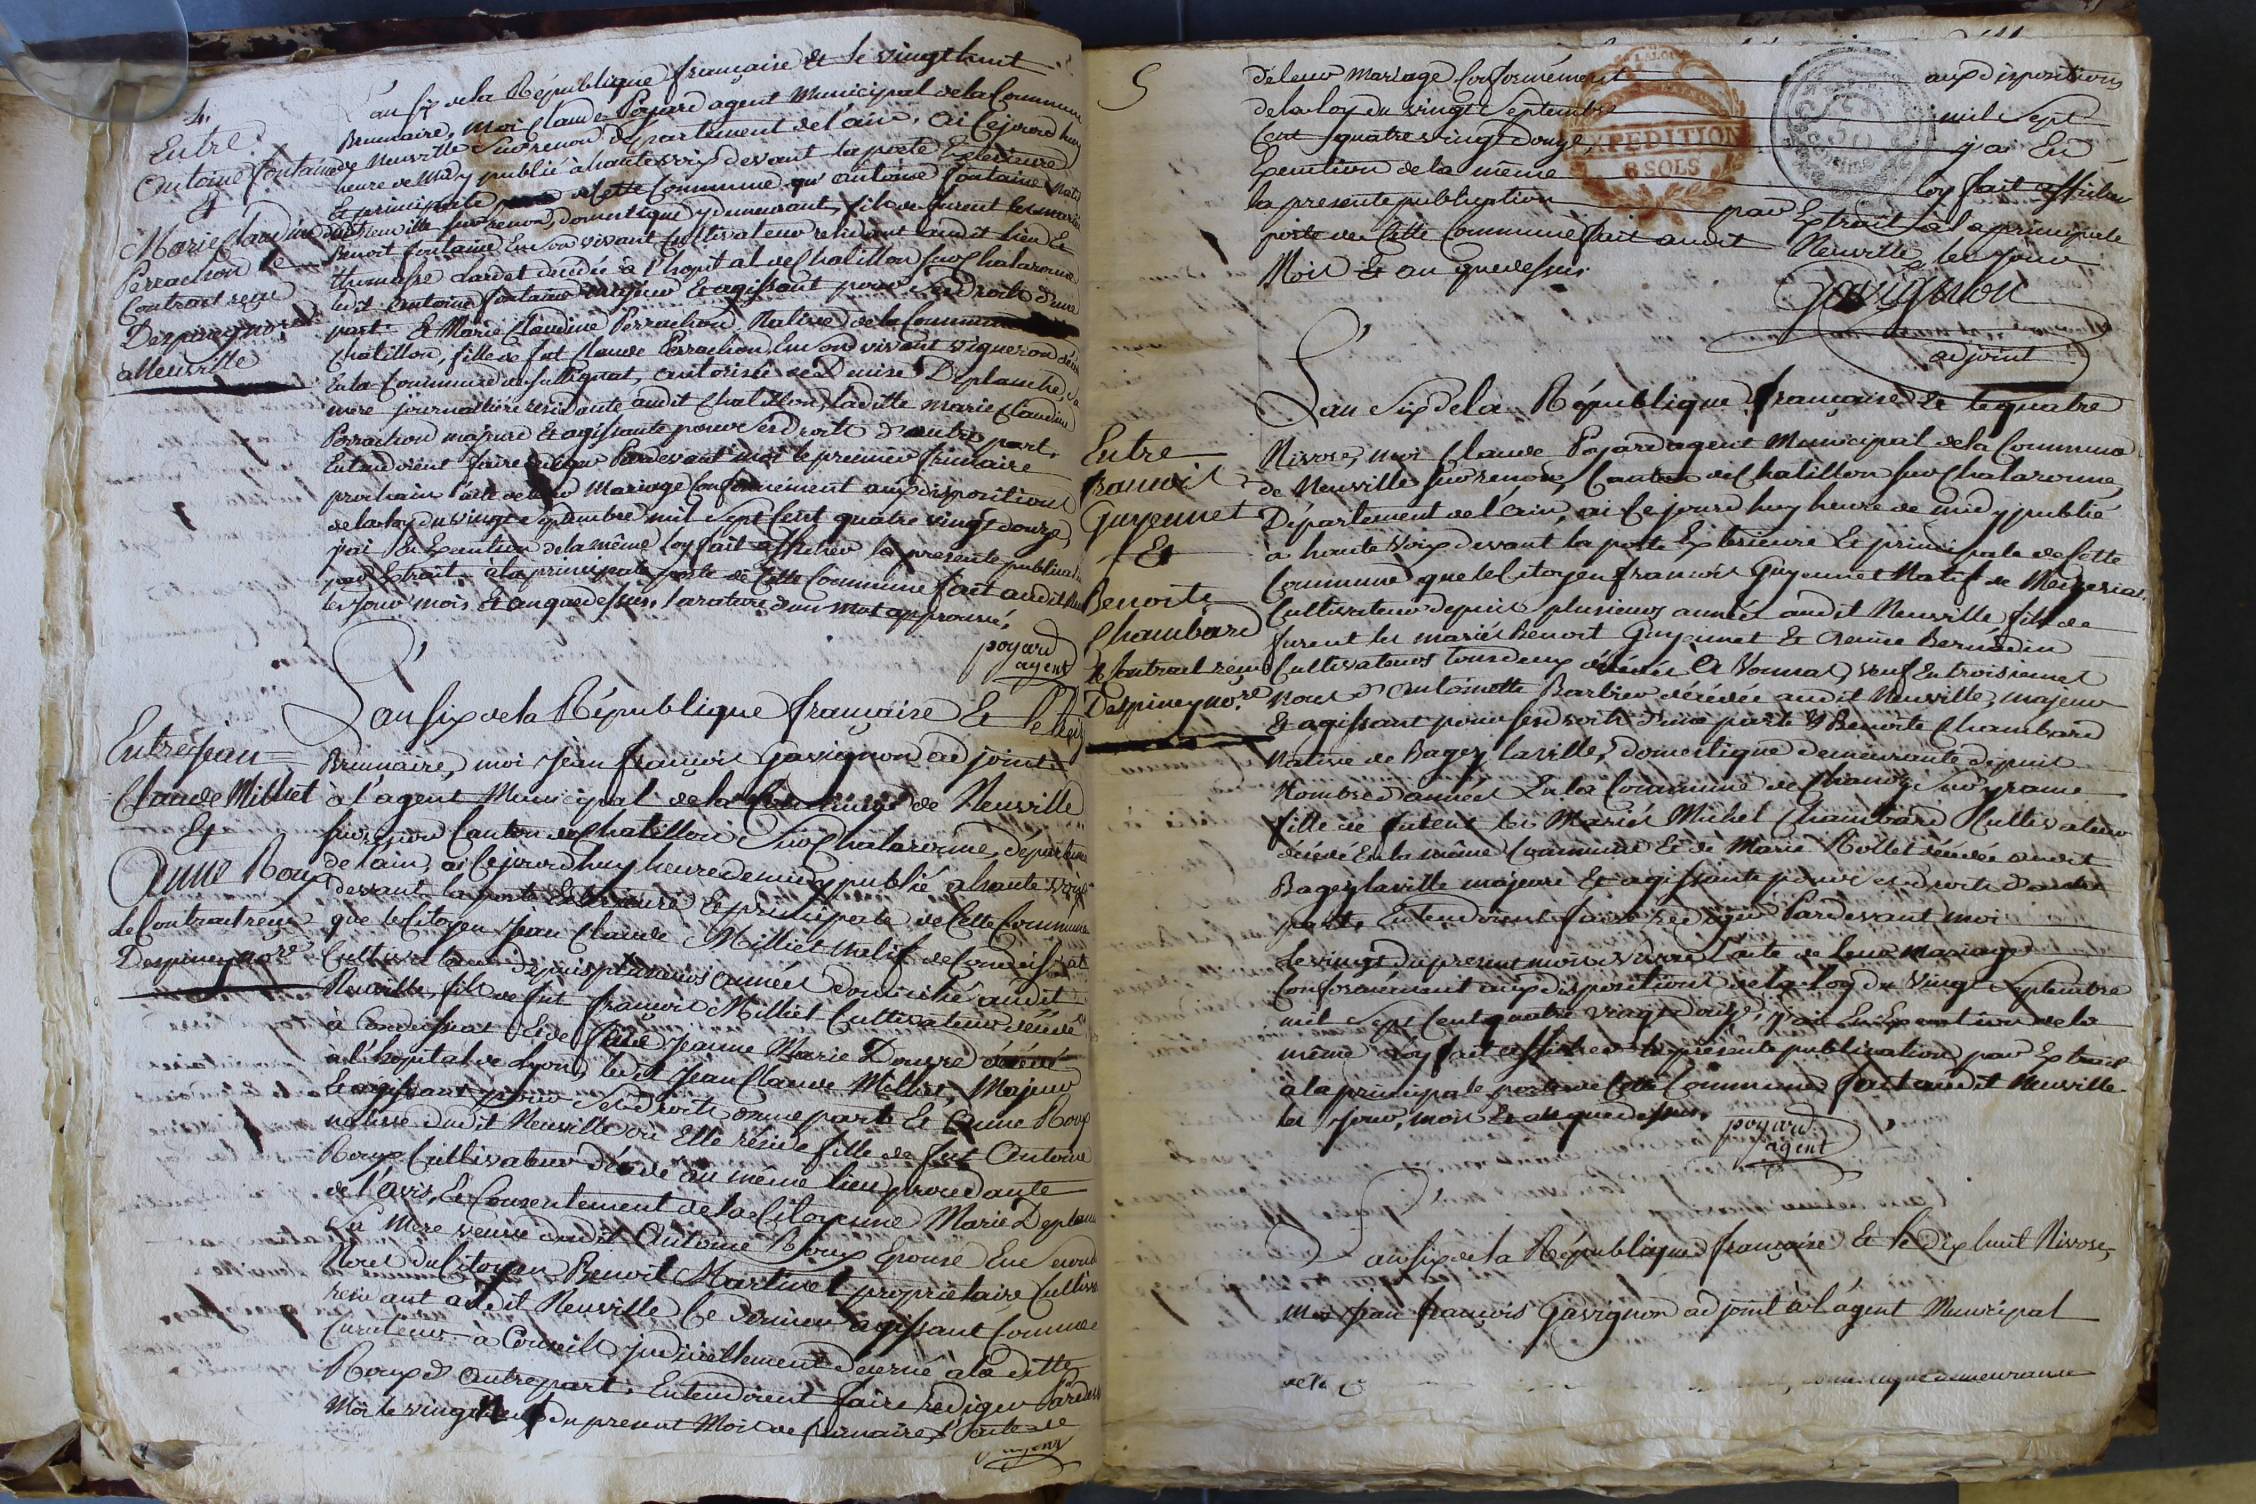 4.
Entre
Antoine fontaine
Et
Marie Claudine
Perrachon le
Contract reçu
Despiney no.re
a Neuville
L'an six de la République française et le vingt huit
Brumaire, moi Claude Poyard agent Municipal de la Commune
de Neuville sur renon département de l'ain, ai cejourd'huy
heure de midy publié à haute voix devant la porte Exterieure
Et principale de Cette Commune qu'antoine fontaine Natif
de Neuville sur renon, domestique y demeurant, fils de furent les mariés
Benoit fontaine En son vivant Cultivateur residant audit lieu Et
thomasse Lardet decedée à l'hopital de Chatillon sur Chalaronne
ledit Antoine fontaine majeur Et agissant pour ses droits d'une
part. Et Marie Claudine Perrachon Native de la Commune
Chatillon, fille de fut Claude Perrachon En son vivant vigneron
En la Commune de Sulignat, autorisée de Denise Deplanche, sa
mere journalliere residante audit Chatillon, laditte marie Claudine
Perrachon majeure Et agissante pour ses droits d'autre part.
Entendoient faire rediger Pardevant moi le premier frimaire
prochain l'acte de leur Mariage Conformément aux dispositions
de la loy du vingt septembre mil sept Cent quatre vingt douze
j'ai En Execution de la même loy fait afficher la presente publication
par Extrait à la principale porte de Cette Commune fait audit
les jour mois Et an que dessus. la rature d'un mot approuvé,
poyard
agent
Entre Jean
Claude Milliet
Et
Anne Roux
le Contract reçu
Despiney no.re
L'an six de la République française Et le
Brumaire, moi Jean françois Gavignon adjoint
à l'agent Municipal de la Commune de Neuville
sur renon Canton de Chatillon sur Chalaronne, departement
de l'ain, ai Cejourd'huy heure de midy publié a haute voix
devant la porte Exterieure Et principale de Cette Commune
que le Citoyen Jean Claude Milliet natif de Condeissiat
Cultivateur depuis plusieurs années domicilié audit
Neuville, fils de fut françois Milliet Cultivateur décédé
à Condeissiat Et de Jeanne Marie Douvre décédé
à l'hopital de Lyon, ledit Jean Claude Milliet, Majeur
Et agissant pour ses droits d'une part Et Anne Roux
native dudit Neuville où Elle réside fille de fut Antoine
Roux Cultivateur décédé au même lieu procedante
de l'avis, Et Consentement de la Citoyenne Marie
sa mere veuve dudit Antoine Roux Epouse En
Noces du Citoyen Benoit Martinet propriétaire
residant audit Neuville Ce dernier agissant Comme
Curateur à Conseils judiciellement decerné à la ditte
Roux d'autre part. Entendoient faire rediger
Moi le vingt du present Mois de frimaire, l'acte de
5
de leur Mariage Conformément aux dispositions
de la loy du vingt Septembre mil Sept
Cent quatre vingt douze, j'ai En
Execution de la même loy fait afficher
la presente publication par Extrait à la principale
porte de Cette Commune fait audit Neuville, les jour
Mois Et an que dessus.
EXPEDITION
6 SOLS
Gavignon
adjoint
Entre
françois
Guyennet
Et
Benoite
Chambard
le Contract reçu
Despiney no.re
L'an six de la République française Et le quatre
Nivose, moi Claude Poyard agent Municipal de la Commune
de Neuville sur renon, Canton de Chatillon sur Chalaronne,
Département de l'ain, ai Cejourd'huy heure de midy publié
à haute voix devant la porte Exterieure Et principale de Cette
Commune que le Citoyen françois Guyennet Natif de Mezeriat
Cultivateur depuis plusieurs années audit Neuville fils de
furent les mariés Benoit Guyennet Et Bernardin
Cultivateurs tous deux décédés à Vonnas, veuf En troisiemes
noces d'antoinette Barbier décédée audit Neuville, majeur
Et agissant pour ses droits d'une part. Et Benoite Chambard
Native de Bagey la ville, domestique demeurante depuis
Nombre d'années En la Commune de sur
fille de furent les Mariés Michel Chambard Cultivateur
décédé En la même Commune Et de Marie Rollet décédée audit
Bagey la ville majeure Et agissante pour ses droits d'autre
part. Entendoient faire rediger Pardevant moi
le vingt du present mois de l'acte de leur mariage
Conformément aux dispositions de la loy du Vingt Septembre
mil Sept Cent quatre vingt douze, j'ai En Execution de la
même loy fait afficher la présente publication par Extrait
à la principale porte de Cette Commune fait audit Neuville
les jour, mois Et an que dessus.
poyard
agent
L'an six de la République française Et le dix huit Nivose,
moi Jean françois Gavignon adjoint à l'agent Municipal
demeurante